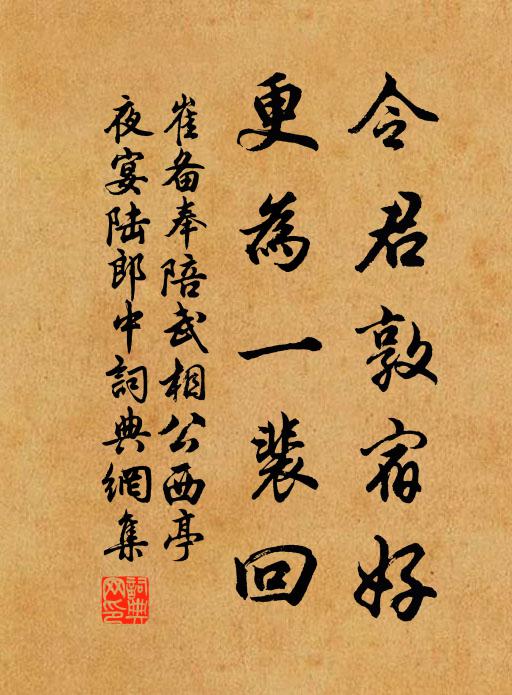 令君敦宿好
更為一裴回
崔备奉陪武相公西亭
夜宴陆郎中詞典網集
詞典網印